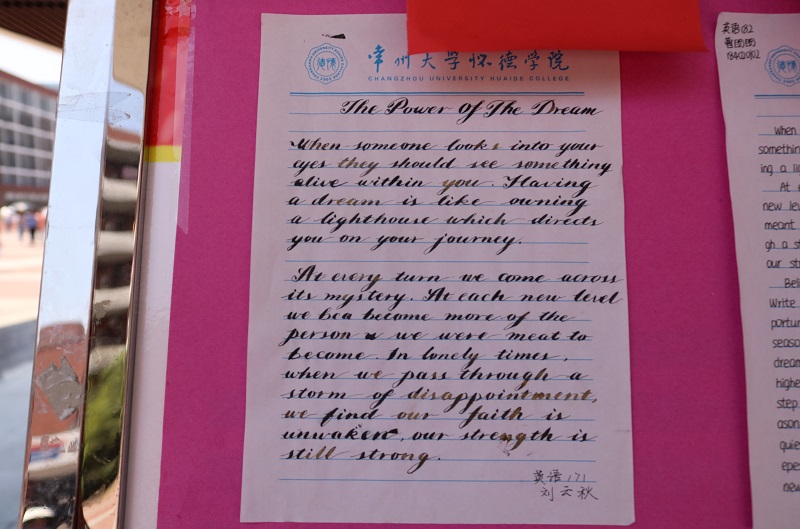 常州大学怀德学院
CHANGZHOU UNIVERSITY HUAIDE COLLEGE
The Power Of The Dream
When someone looks into your
eyes they should see something
alive within you. Having
a dream is like owning
a lighthouse which directs
you on your journey.
At every turn we come across
its mystery. At each new level
we bca become more of the
person we were meat to
become. In lonely times,
when we pass through a
storm of disappointment,
we find our faith is
unwaken, our strength is
still strong.
英语171
刘云秋
英语182
When
somethin
ing a li
At e
new lev
meant
gh a st
our str
Beli
Write
portun
seaso
dream
highe
step
ason
quie
epes
new